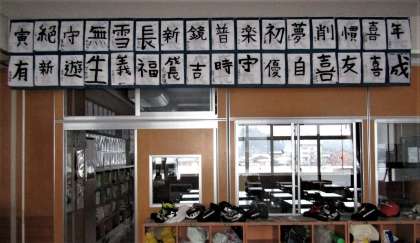 寅絶守無雪長新鏡普楽初夢削慎喜年
有新遊生義福篤吉時守優自喜友喜成